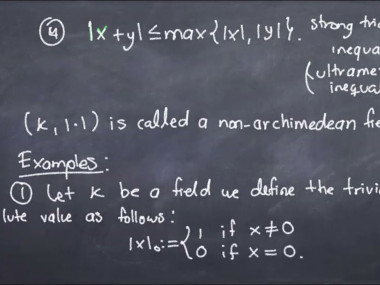 (4) |x+y| ≤ max{|x|, |y|}. strong
(ultrame
inequa
(K, |·|) is called a non-archimedean fie
Examples:
(1) Let K be a field we define the trivi
lute value as follows:
|x|₀ := { 1 if x≠0
0 if x=0.